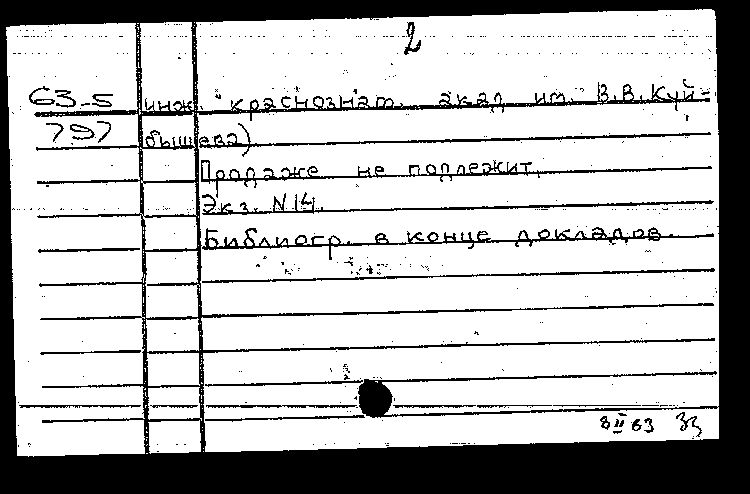 2
63-5 инж. краснознам. акад им. В.В.Куй-
797 бышева)
Продаже не подлежит.
Экз. N14.
Библиогр. в конце докладов.
8 II 63